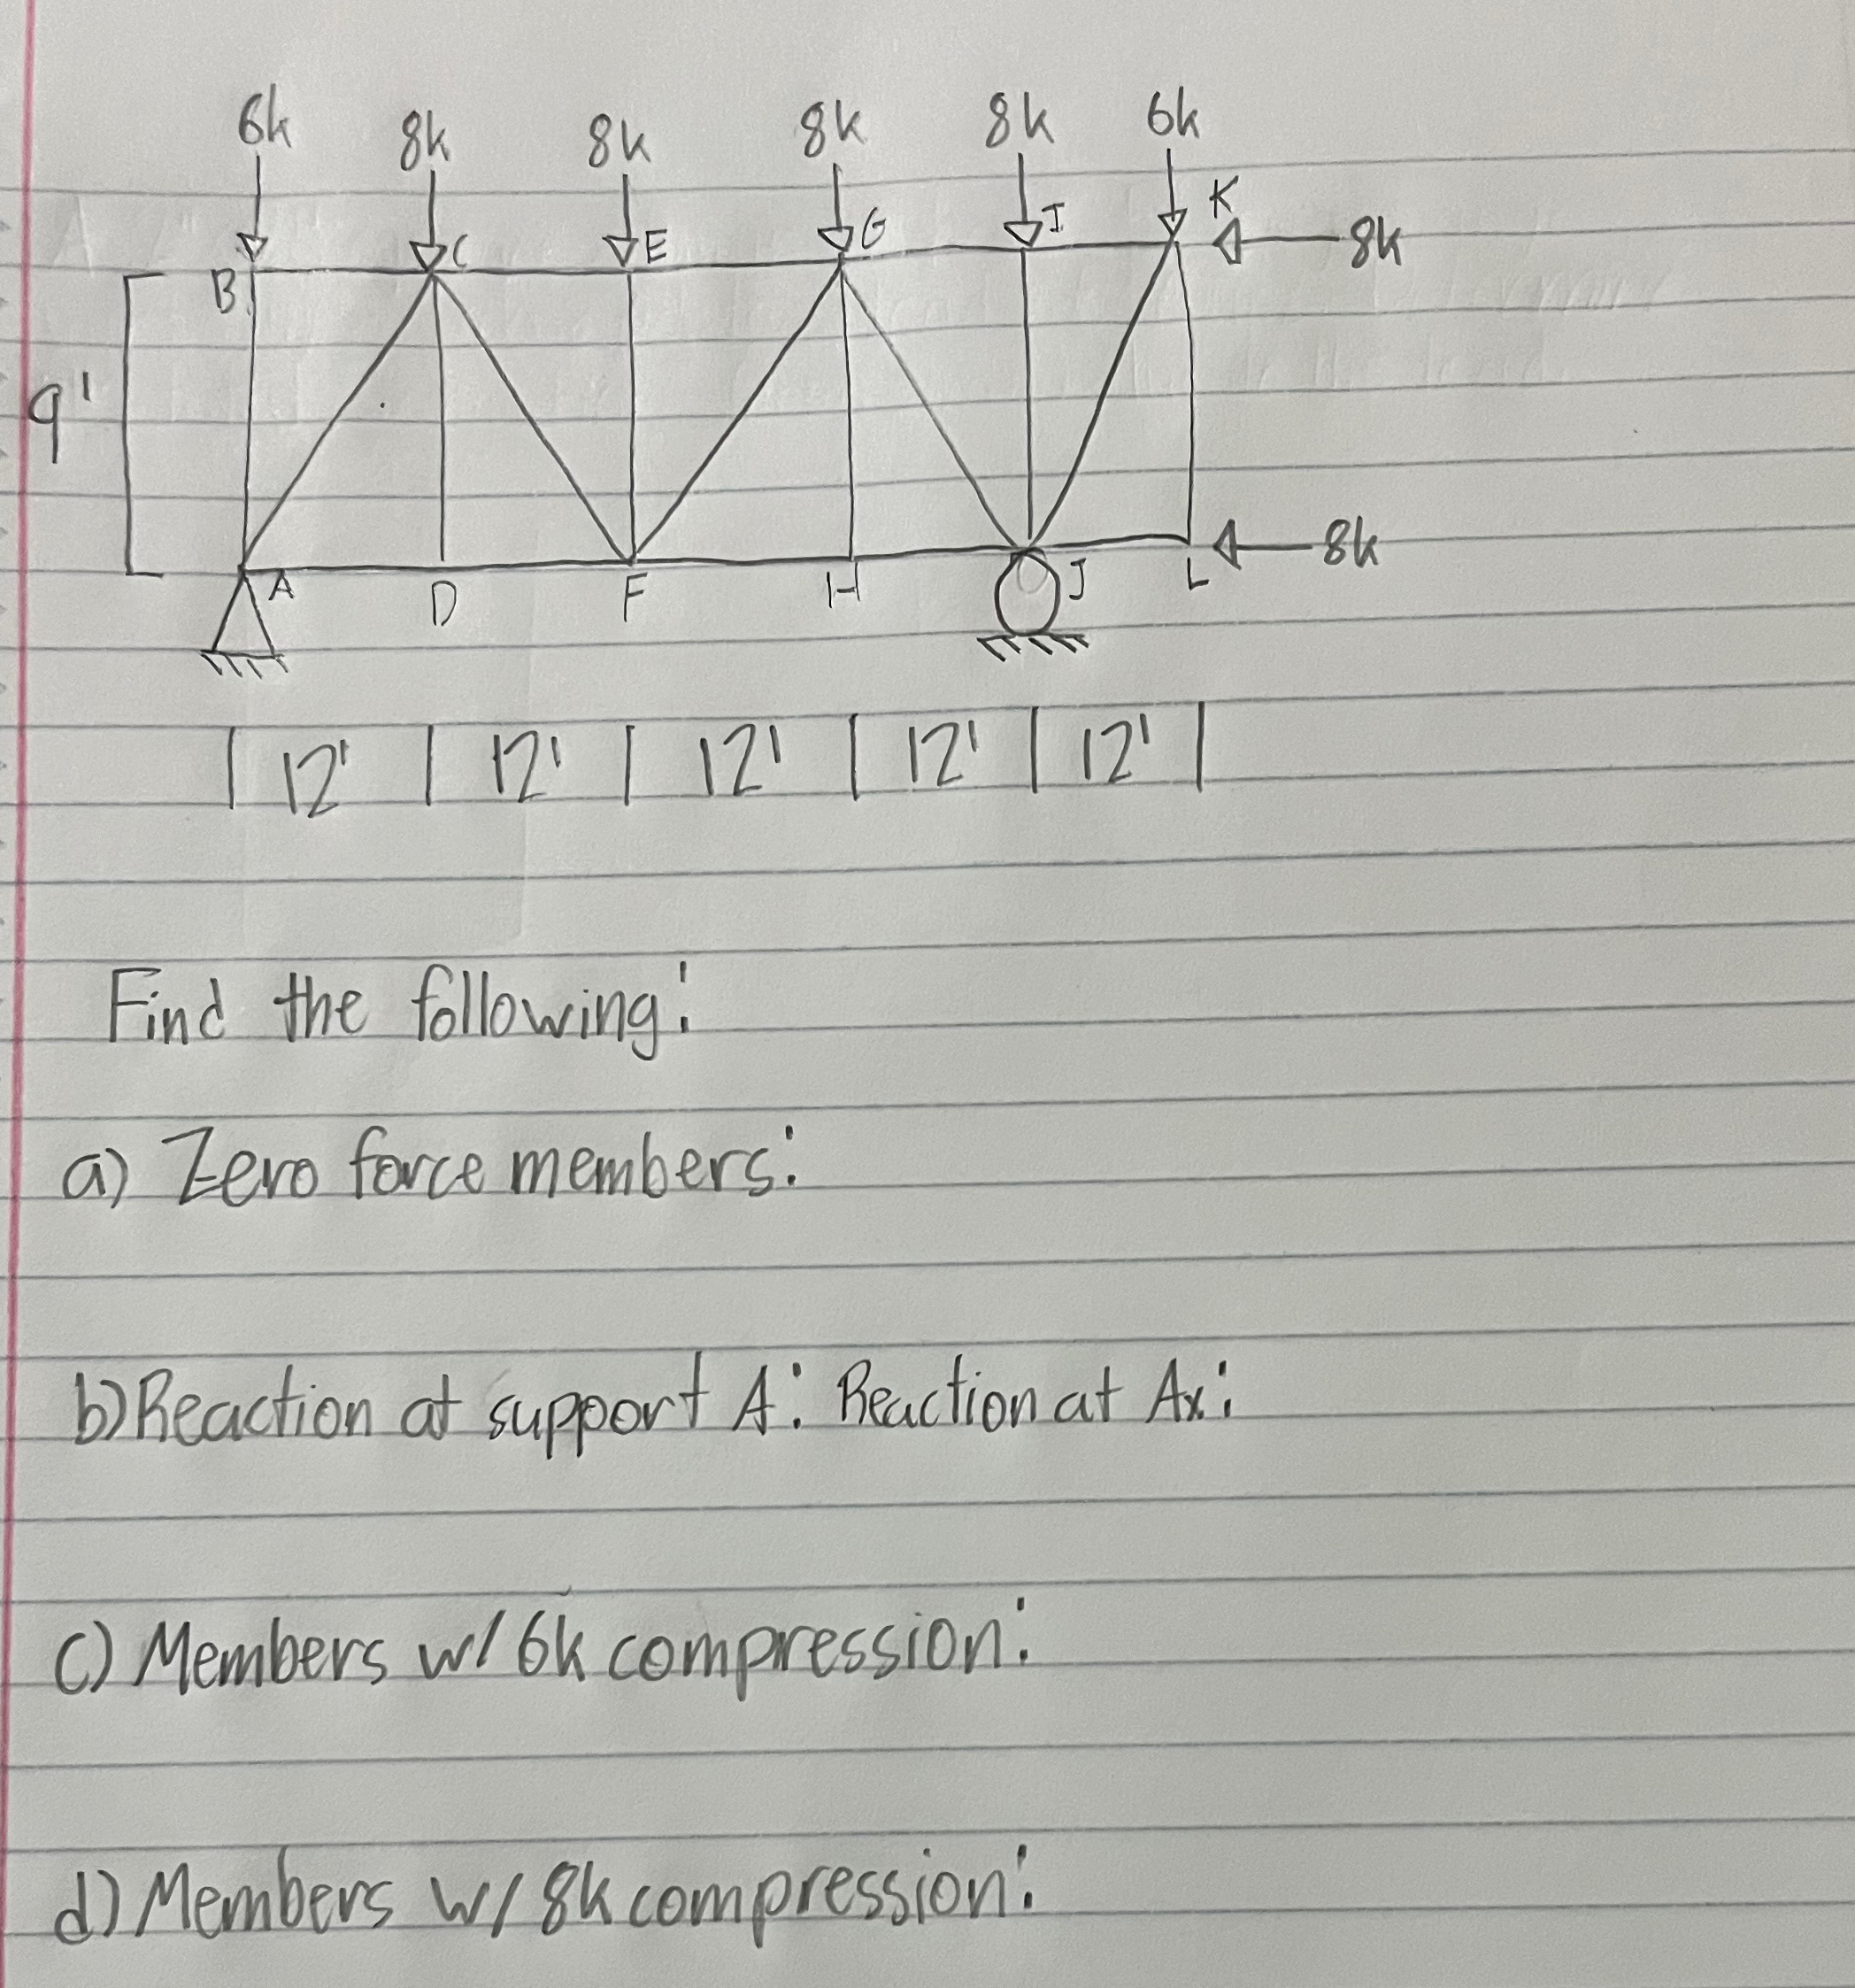 6k 8k 8k 8k 8k 6k
B C E G I K 8k
9'
A D F H J L 8k
12' 12' 12' 12' 12'
Find the following:
a) Zero force members:
b) Reaction at support A: Reaction at Ax:
c) Members w/ 6k compression:
d) Members w/ 8k compression: